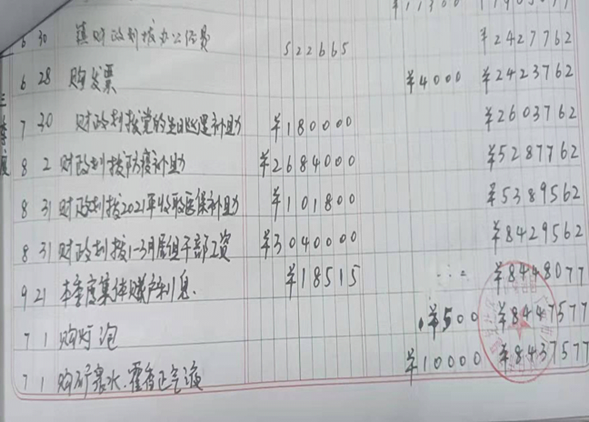 6 30 镇财政划拨办公经费 522665 ¥2427762
6 28 购发票 ¥4000 ¥2423762
三季度
7 30 财政划拨党的生日补助 ¥180000 ¥2603762
8 2 财政划拨防疫补助 ¥2684000 ¥5287762
8 31 财政划拨2021年收取医保补助 ¥101800 ¥5389562
8 31 财政划拨1-3月居组干部工资 ¥3040000 ¥8429562
9 21 本季度集体账户利息. ¥18515 ¥8448077
7 1 购灯泡 ¥500 ¥8447577
7 1 购矿泉水.藿香正气液 ¥10000 ¥8437577